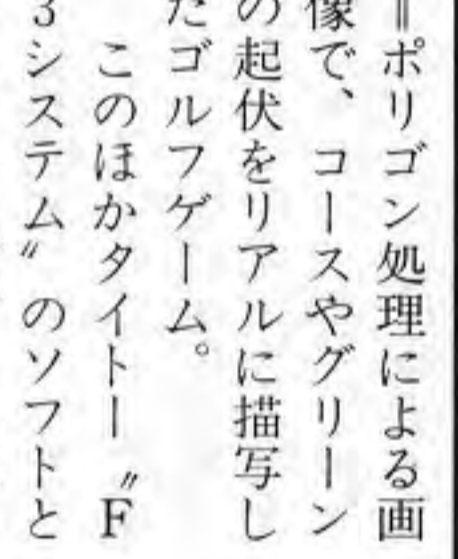 ＝ポリゴン処理による画
像で、コースやグリーン
の起伏をリアルに描写し
たゴルフゲーム。
このほかタイトー〝F
3システム〟のソフトと